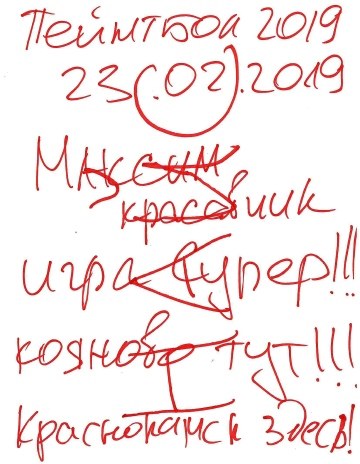 Пейнтбол 2019
23.02.2019
Максим
красавчик
игра супер!!!
кояново тут!!!
Краснокамск здесь!